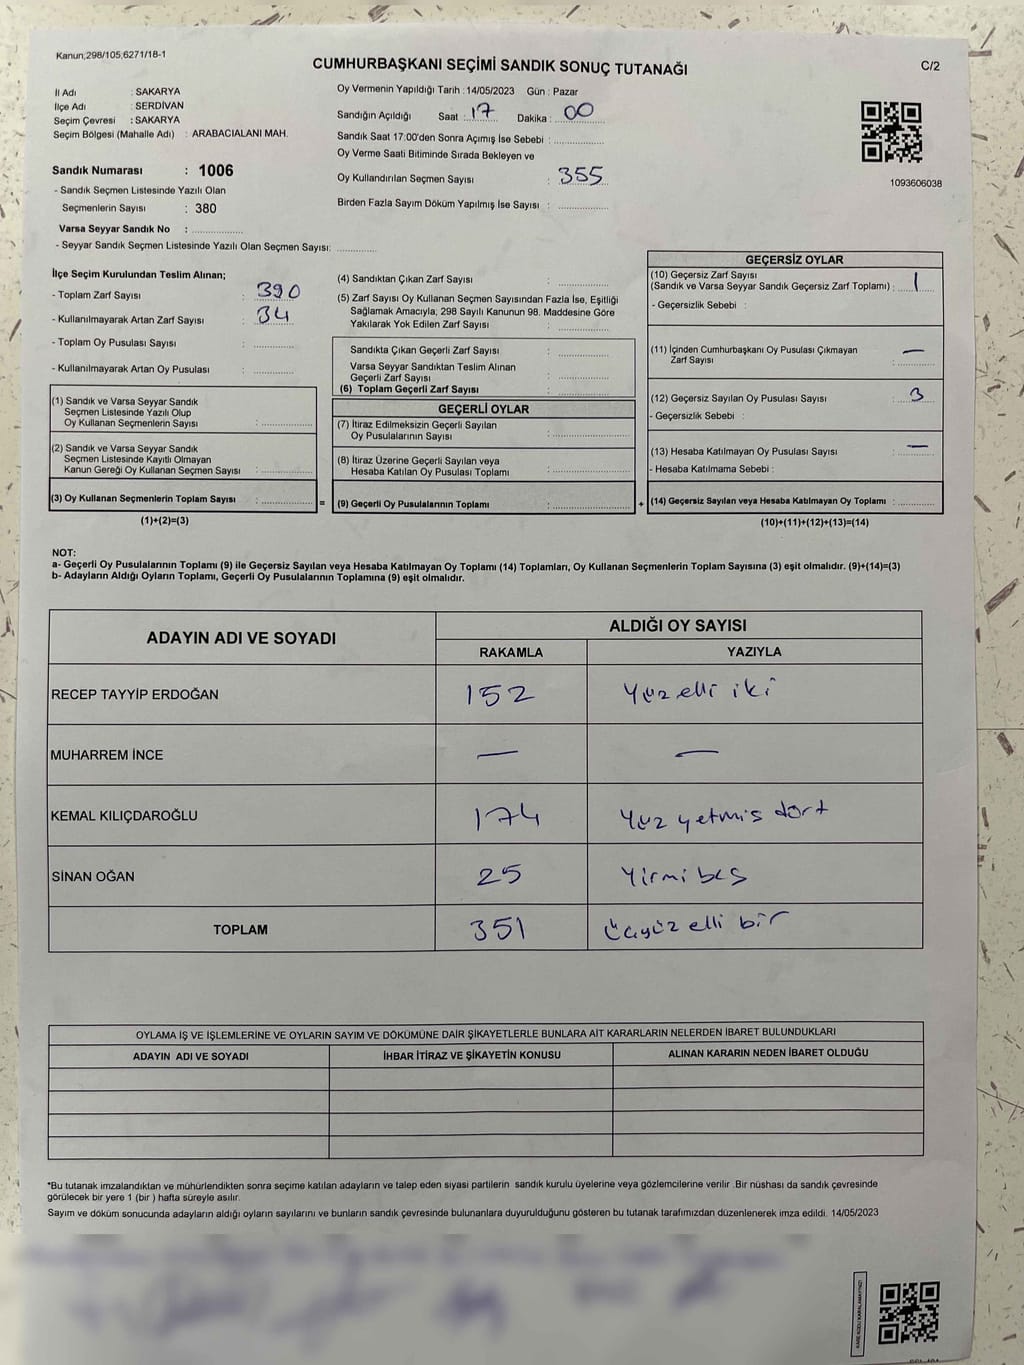 Kanun;298/105,6271/18-1
CUMHURBAŞKANI SEÇİMİ SANDIK SONUÇ TUTANAĞI
C/2
İl Adı : SAKARYA
İlçe Adı : SERDİVAN
Seçim Çevresi : SAKARYA
Seçim Bölgesi (Mahalle Adı) : ARABACIALANI MAH.
Sandık Numarası : 1006
- Sandık Seçmen Listesinde Yazılı Olan
Seçmenlerin Sayısı : 380
Varsa Seyyar Sandık No : ..............
- Seyyar Sandık Seçmen Listesinde Yazılı Olan Seçmen Sayısı: ............
Oy Vermenin Yapıldığı Tarih : 14/05/2023 Gün : Pazar
Sandığın Açıldığı Saat : 17 Dakika : 00
Sandık Saat 17:00'den Sonra Açımış İse Sebebi : ..............
Oy Verme Saati Bitiminde Sırada Bekleyen ve
Oy Kullandırılan Seçmen Sayısı : 355
Birden Fazla Sayım Döküm Yapılmış İse Sayısı : ..............
1093606038
İlçe Seçim Kurulundan Teslim Alınan;
- Toplam Zarf Sayısı : 390
- Kullanılmayarak Artan Zarf Sayısı : 34
- Toplam Oy Pusulası Sayısı : ............
- Kullanılmayarak Artan Oy Pusulası : ............
(1) Sandık ve Varsa Seyyar Sandık
Seçmen Listesinde Yazılı Olup
Oy Kullanan Seçmenlerin Sayısı : ............
(2) Sandık ve Varsa Seyyar Sandık
Seçmen Listesinde Kayıtlı Olmayan
Kanun Gereği Oy Kullanan Seçmen Sayısı : ............
(3) Oy Kullanan Seçmenlerin Toplam Sayısı : ............ =
(1)+(2)=(3)
(4) Sandıktan Çıkan Zarf Sayısı : ............
(5) Zarf Sayısı Oy Kullanan Seçmen Sayısından Fazla İse, Eşitliği
Sağlamak Amacıyla, 298 Sayılı Kanunun 98. Maddesine Göre
Yakılarak Yok Edilen Zarf Sayısı : ............
Sandıkta Çıkan Geçerli Zarf Sayısı : ............
Varsa Seyyar Sandıktan Teslim Alınan
Geçerli Zarf Sayısı : ............
(6) Toplam Geçerli Zarf Sayısı : ............
GEÇERLİ OYLAR
(7) İtiraz Edilmeksizin Geçerli Sayılan
Oy Pusulalarının Sayısı : ............
(8) İtiraz Üzerine Geçerli Sayılan veya
Hesaba Katılan Oy Pusulası Toplamı : ............
(9) Geçerli Oy Pusulalarının Toplamı : ............ +
GEÇERSİZ OYLAR
(10) Geçersiz Zarf Sayısı
(Sandık ve Varsa Seyyar Sandık Geçersiz Zarf Toplamı) : 1
- Geçersizlik Sebebi :
(11) İçinden Cumhurbaşkanı Oy Pusulası Çıkmayan
Zarf Sayısı : —
(12) Geçersiz Sayılan Oy Pusulası Sayısı : 3
- Geçersizlik Sebebi :
(13) Hesaba Katılmayan Oy Pusulası Sayısı : —
- Hesaba Katılmama Sebebi :
(14) Geçersiz Sayılan veya Hesaba Katılmayan Oy Toplamı : ............
(10)+(11)+(12)+(13)=(14)
NOT:
a- Geçerli Oy Pusulalarının Toplamı (9) ile Geçersiz Sayılan veya Hesaba Katılmayan Oy Toplamı (14) Toplamları, Oy Kullanan Seçmenlerin Toplam Sayısına (3) eşit olmalıdır. (9)+(14)=(3)
b- Adayların Aldığı Oyların Toplamı, Geçerli Oy Pusulalarının Toplamına (9) eşit olmalıdır.
ADAYIN ADI VE SOYADI ALDIĞI OY SAYISI
RAKAMLA YAZIYLA
RECEP TAYYİP ERDOĞAN 152 Yüz elli iki
MUHARREM İNCE — —
KEMAL KILIÇDAROĞLU 174 Yüz yetmis dört
SİNAN OĞAN 25 Yirmi beş
TOPLAM 351 Üçyüz elli bir
OYLAMA İŞ VE İŞLEMLERİNE VE OYLARIN SAYIM VE DÖKÜMÜNE DAİR ŞİKAYETLERLE BUNLARA AİT KARARLARIN NELERDEN İBARET BULUNDUKLARI
ADAYIN ADI VE SOYADI İHBAR İTİRAZ VE ŞİKAYETİN KONUSU ALINAN KARARIN NEDEN İBARET OLDUĞU
*Bu tutanak imzalandıktan ve mühürlendikten sonra seçime katılan adayların ve talep eden siyasi partilerin sandık kurulu üyelerine veya gözlemcilerine verilir .Bir nüshası da sandık çevresinde
görülecek bir yere 1 (bir ) hafta süreyle asılır.
Sayım ve döküm sonucunda adayların aldığı oyların sayılarını ve bunların sandık çevresinde bulunanlara duyurulduğunu gösteren bu tutanak tarafımızdan düzenlenerek imza edildi. 14/05/2023